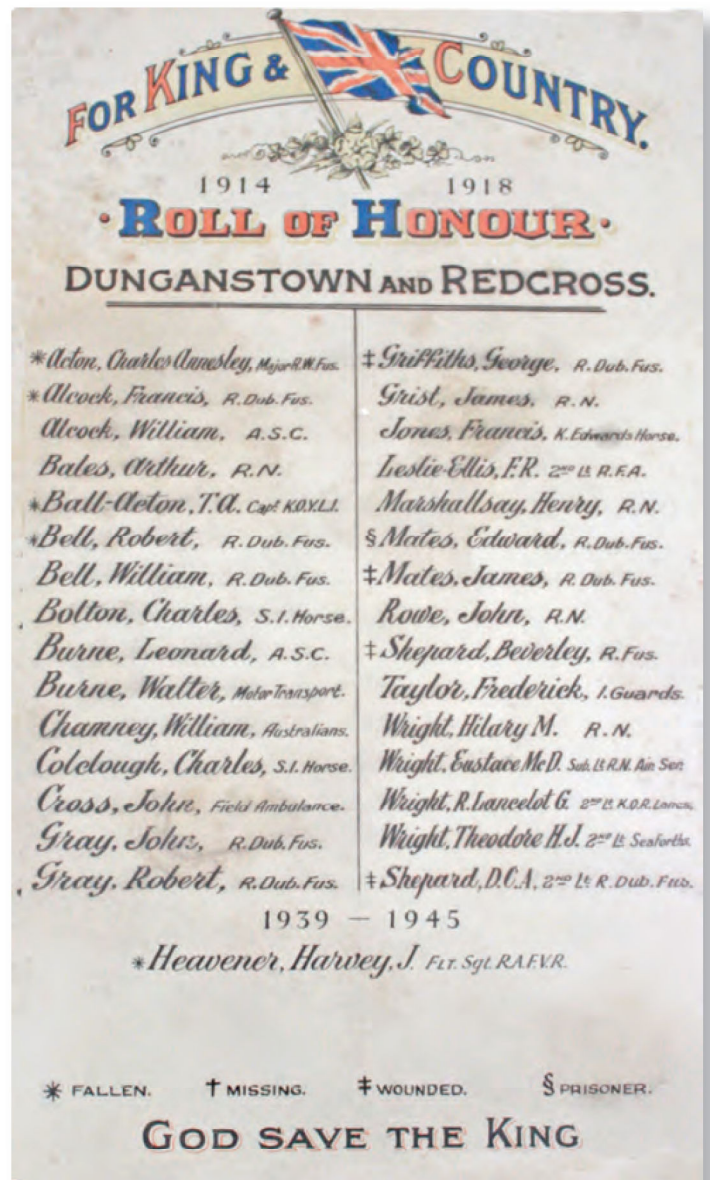 FOR KING & COUNTRY.
1914 1918
· ROLL OF HONOUR ·
DUNGANSTOWN AND REDCROSS.
*Acton, Charles Annesley, Major R.W. Fus.
*Alcock, Francis, R. Dub. Fus.
Alcock, William, A.S.C.
Bales, Arthur, R.N.
*Ball-Acton, T.A. Capt. K.O.Y.L.I.
*Bell, Robert, R. Dub. Fus.
Bell, William, R. Dub. Fus.
Bolton, Charles, S.I. Horse.
Burne, Leonard, A.S.C.
Burne, Walter, Motor Transport.
Chamney, William, Australians.
Colclough, Charles, S.I. Horse.
Cross, John, Field Ambulance.
Gray, John, R. Dub. Fus.
Gray, Robert, R. Dub. Fus.
‡Griffiths, George, R. Dub. Fus.
Grist, James, R.N.
Jones, Francis, K. Edwards Horse.
Leslie-Ellis, F.R. 2ND Lt R.F.A.
Marshallsay, Henry, R.N.
§Mates, Edward, R. Dub. Fus.
‡Mates, James, R. Dub. Fus.
Rowe, John, R.N.
‡Shepard, Beverley, R. Fus.
Taylor, Frederick, I. Guards.
Wright, Hilary M. R.N.
Wright, Eustace McD. Sub. Lt R.N. Air Ser.
Wright, R. Lancelot G. 2ND Lt K.O.R. Lancs.
Wright, Theodore H.J. 2ND Lt Seaforths.
‡Shepard, D.C.A, 2ND Lt R. Dub. Fus.
1939 — 1945
*Heavener, Harvey, J. FLT. Sgt. R.A.F.V.R.
* FALLEN. † MISSING. ‡ WOUNDED. § PRISONER.
GOD SAVE THE KING